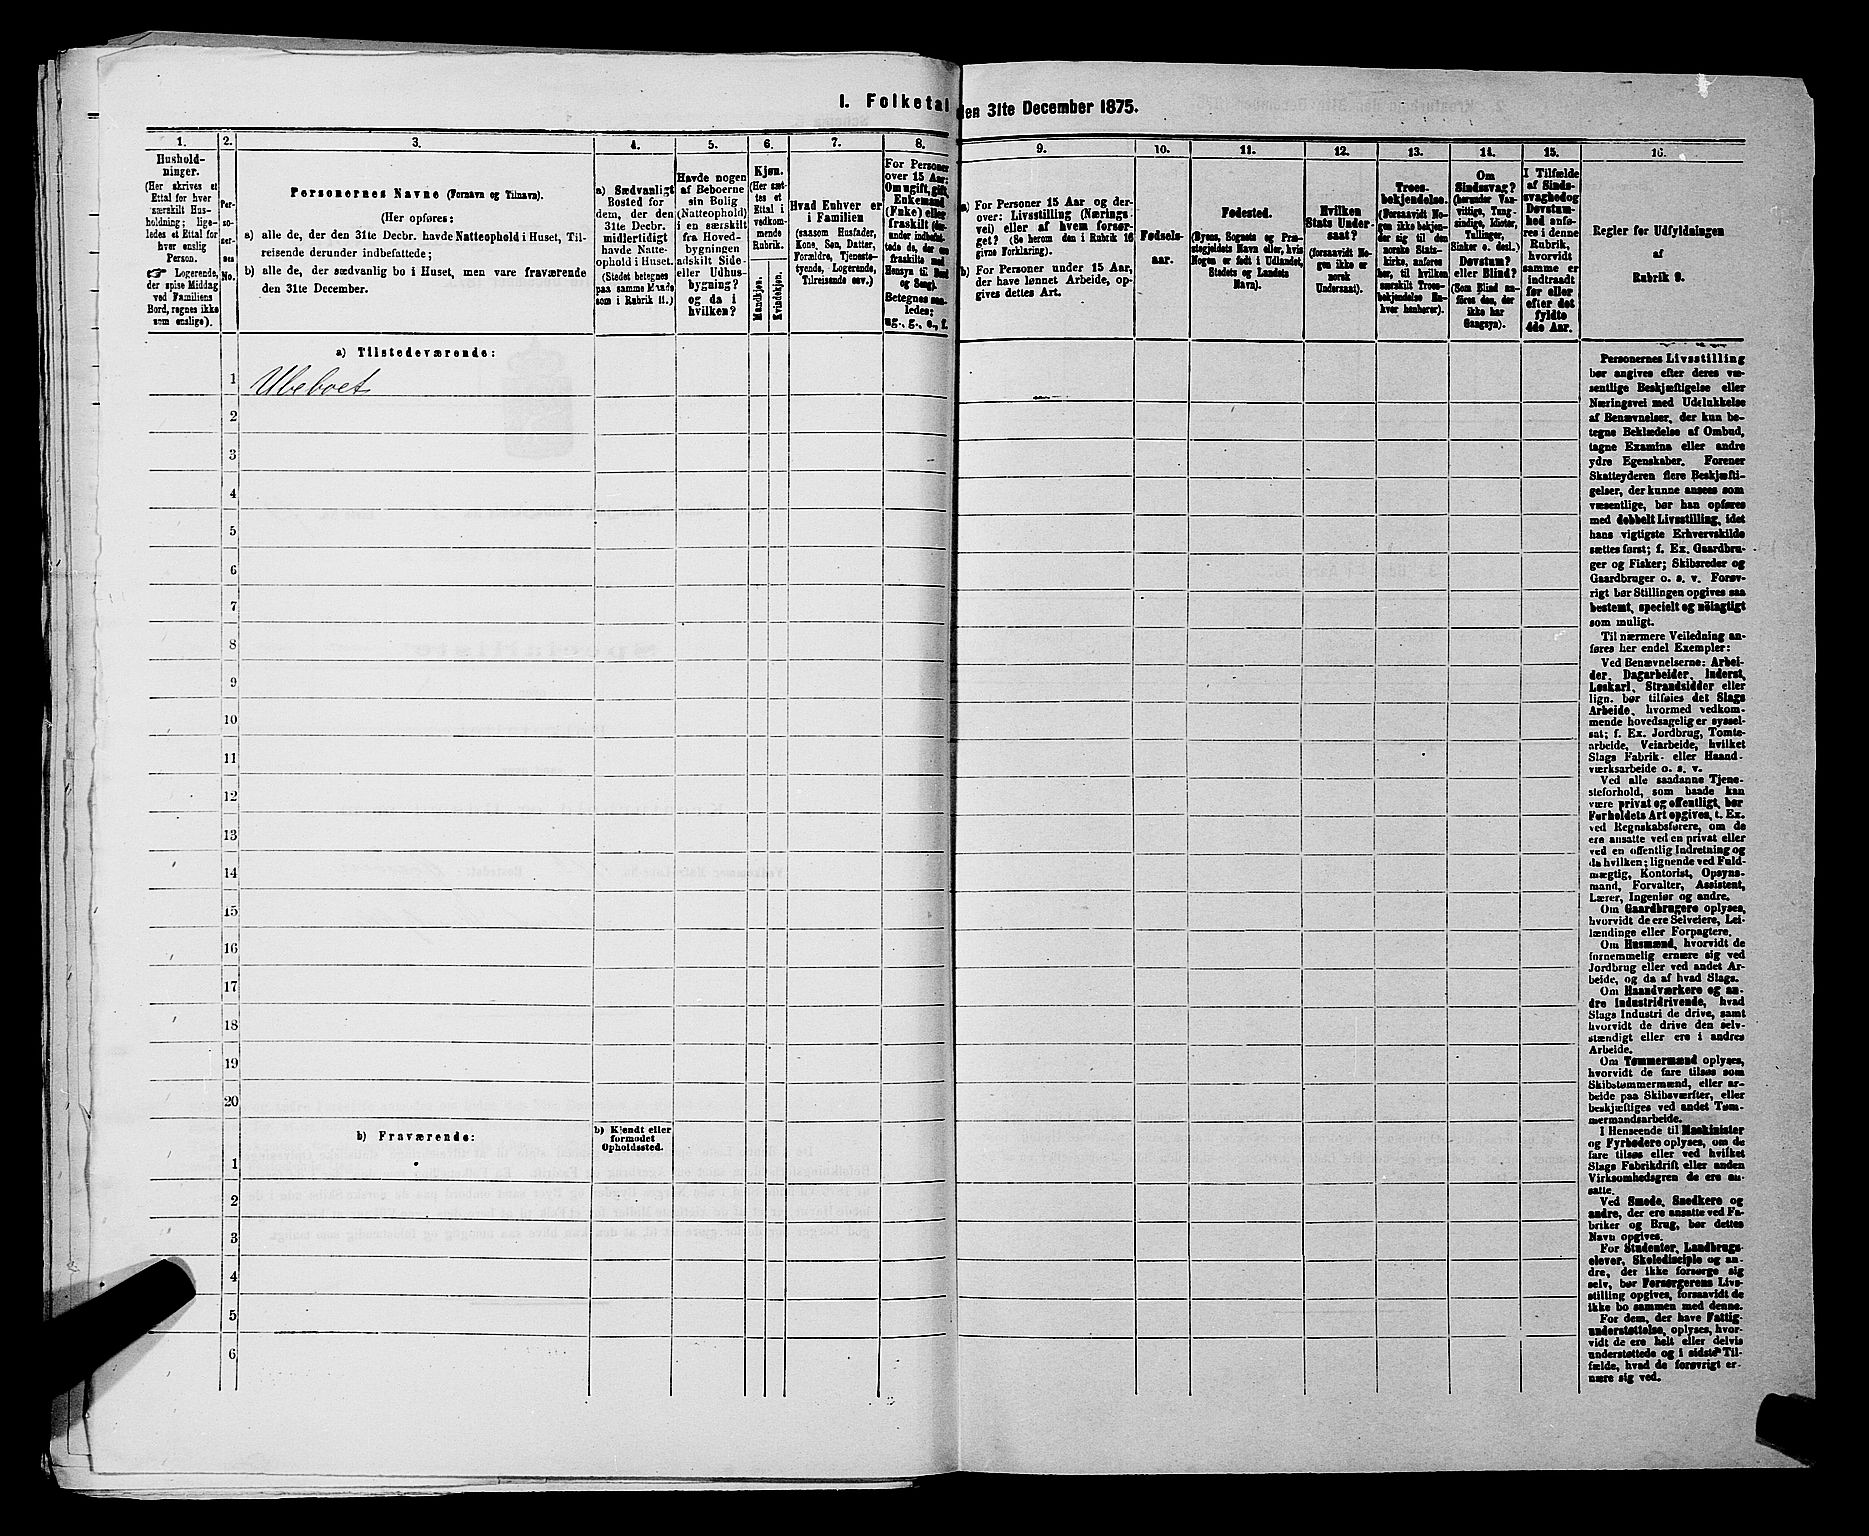 I. Folketal den 31te December 1875.
1.
Hushold-
ninger.
(Her skrives et
Ettal for hver
særskilt Hus-
holdning; lige-
ledes et Ettal for
hver enslig
Person.
☞ Logerende,
der spise Middag
ved Familiens
Bord, regnes ikke
som enslige).
2.
Per-
so-
ner-
nes
No.
3.
Personernes Navne (Fornavn og Tilnavn).
(Her opføres:
a) alle de, der den 31te Decbr. havde Natteophold i Huset, Til-
reisende derunder indbefattede;
b) alle de, der sædvanlig bo i Huset, men vare fraværende
den 31te December.
4.
a) Sædvanligt
Bosted for
dem, der den
31te Decbr.
midlertidigt
havde Natte-
ophold i Huset.
(Stedet betegnes
paa samme Maade
som i Rubrik 11.)
5.
Havde nogen
af Beboerne
sin Bolig
(Natteophold)
i en særskilt
fra Hoved-
bygningen
adskilt Side-
eller Udhus-
bygning?
og da i
hvilken?
6.
Kjøn.
(Her sæt-
tes et
Ettal i
vedkom-
mende
Rubrik.
Mandkjøn.
Kvindekjøn.
7.
Hvad Enhver er
i Familien
(saasom Husfader,
Kone, Søn, Datter,
Forældre, Tjeneste-
tyende, Logerende,
Tilreisende osv.)
8.
For Personer
over 15 Aar:
Om ugift, gift,
Enkemand
(Enke) eller
fraskilt (der-
under indbefat-
tede de, der ere
fraskilte med
Hensyn til Bord
og Seng).
Betegnes saa-
ledes:
ug., g., e., f.
9.
a) For Personer 15 Aar og der-
over: Livsstilling (Nærings-
vei) eller af hvem forsør-
get? (Se herom den i Rubrik 16
givne Forklaring).
b) For Personer under 15 Aar,
der have lønnet Arbeide, op-
gives dettes Art.
10.
Fødsels-
aar.
11.
Fødested.
(Byens, Sognets og Præ-
stegjeldets Navn eller, hvis
Nogen er født i Udlandet,
Stedets og Landets
Navn).
12.
Hvilken
Stats Under-
saat?
(forsaavidt No-
gen ikke er
norsk
Undersaat).
13.
Troes-
bekjendelse.
(Forsaavidt No-
gen ikke bekjen-
der sig til den
norske Stats-
kirke, anføres
her, til hvilken
særskilt Troes-
bekjendelse En-
hver henhører).
14.
Om
Sindssvag?
(herunder Van-
vittige, Tung-
sindige, Idioter,
Tullinger,
Sinker o. desl.)
Døvstum?
eller Blind?
(Som Blind an-
føres den, der
ikke har
Gangsyn).
15.
I Tilfælde
af Sinds-
svaghed og
Døvstum-
hed anfø-
res i denne
Rubrik,
hvorvidt
samme er
indtraadt
før eller
efter det
fyldte
4de Aar.
16.
Regler for Udfyldningen
af
Rubrik 9.
a) Tilstedeværende:
1 Ubeboet
2
3
4
5
6
7
8
9
10
11
12
13
14
15
16
17
18
19
20
b) Fraværende:
b) Kjendt eller
formodet
Opholdssted.
1
2
3
4
5
6
Personernes Livsstilling
bør angives efter deres væ-
sentlige Beskjæftigelse eller
Næringsvei med Udelukkelse
af Benævnelser, der kun be-
tegne Beklædelse af Ombud,
tagne Examina eller andre
ydre Egenskaber. Forener
Skatteyderen flere Beskjæfti-
gelser, der kunne ansees som
væsentlige, bør han opføres
med dobbelt Livsstilling, idet
hans vigtigste Erhvervskilde
sættes først; f. Ex. Gaardbru-
ger og Fisker; Skibsreder og
Gaardbruger o. s. v. Forøv-
rigt bør Stillingen opgives saa
bestemt, specielt og nöiagtigt
som muligt.
Til nærmere Veiledning an-
føres her endel Exempler:
Ved Benævnelserne: Arbei-
der, Dagarbeider, Inderst,
Løskarl, Strandsidder eller
lign. bør tilføies det Slags
Arbeide, hvormed vedkom-
mende hovedsagelig er syssel-
sat; f. Ex. Jordbrug, Tomte-
arbeide, Veiarbeide, hvilket
Slags Fabrik- eller Haand-
værksarbeide o. s. v.
Ved alle saadanne Tjene-
steforhold, som baade kan
være privat og offentligt, bør
Forholdets Art opgives, t. Ex.
ved Regnskabsførere, om de
ere ansatte ved en privat eller
ved en offentlig Indretning og
da hvilken; lignende ved Fuld-
mægtig, Kontorist, Opsyns-
mand, Forvalter, Assistent,
Lærer, Ingeniør og andre.
Om Gaardbrugere oplyses,
hvorvidt de ere Selveiere, Lei-
lændinge eller Forpagtere.
Om Husmænd, hvorvidt de
fornemmelig ernære sig ved
Jordbrug eller ved andet Ar-
beide, og da af hvad Slags.
Om Haandværkere og an-
dre Industridrivende, hvad
Slags Industri de drive, samt
hvorvidt de drive den selv-
stændigt eller ere i andres
Arbeide.
Om Tømmermænd oplyses,
hvorvidt de fare tilsøs som
Skibstømmermænd, eller ar-
beide paa Skibsværfter, eller
beskjæftiges ved andet Tøm-
mermandsarbeide.
I Henseende til Maskinister
og Fyrbødere oplyses, om de
fare tilsøs eller ved hvilket
Slags Fabrikdrift eller anden
Virksomhedsgren de ere an-
satte.
Ved Smede, Snedkere og
andre, der ere ansatte ved Fa-
briker og Brug, bør dettes
Navn opgives.
For Studenter, Landbrugs-
elever, Skoledisciple og an-
dre, der ikke forsørge sig
selv, bør Forsørgerens Livs-
stilling opgives, forsaavidt de
ikke bo sammen med denne.
For dem, der have Fattig-
understøttelse, oplyses, hvor-
vidt de ere helt eller delvis
understøttede og i sidste Til-
fælde, hvad de forøvrigt er-
nære sig ved.